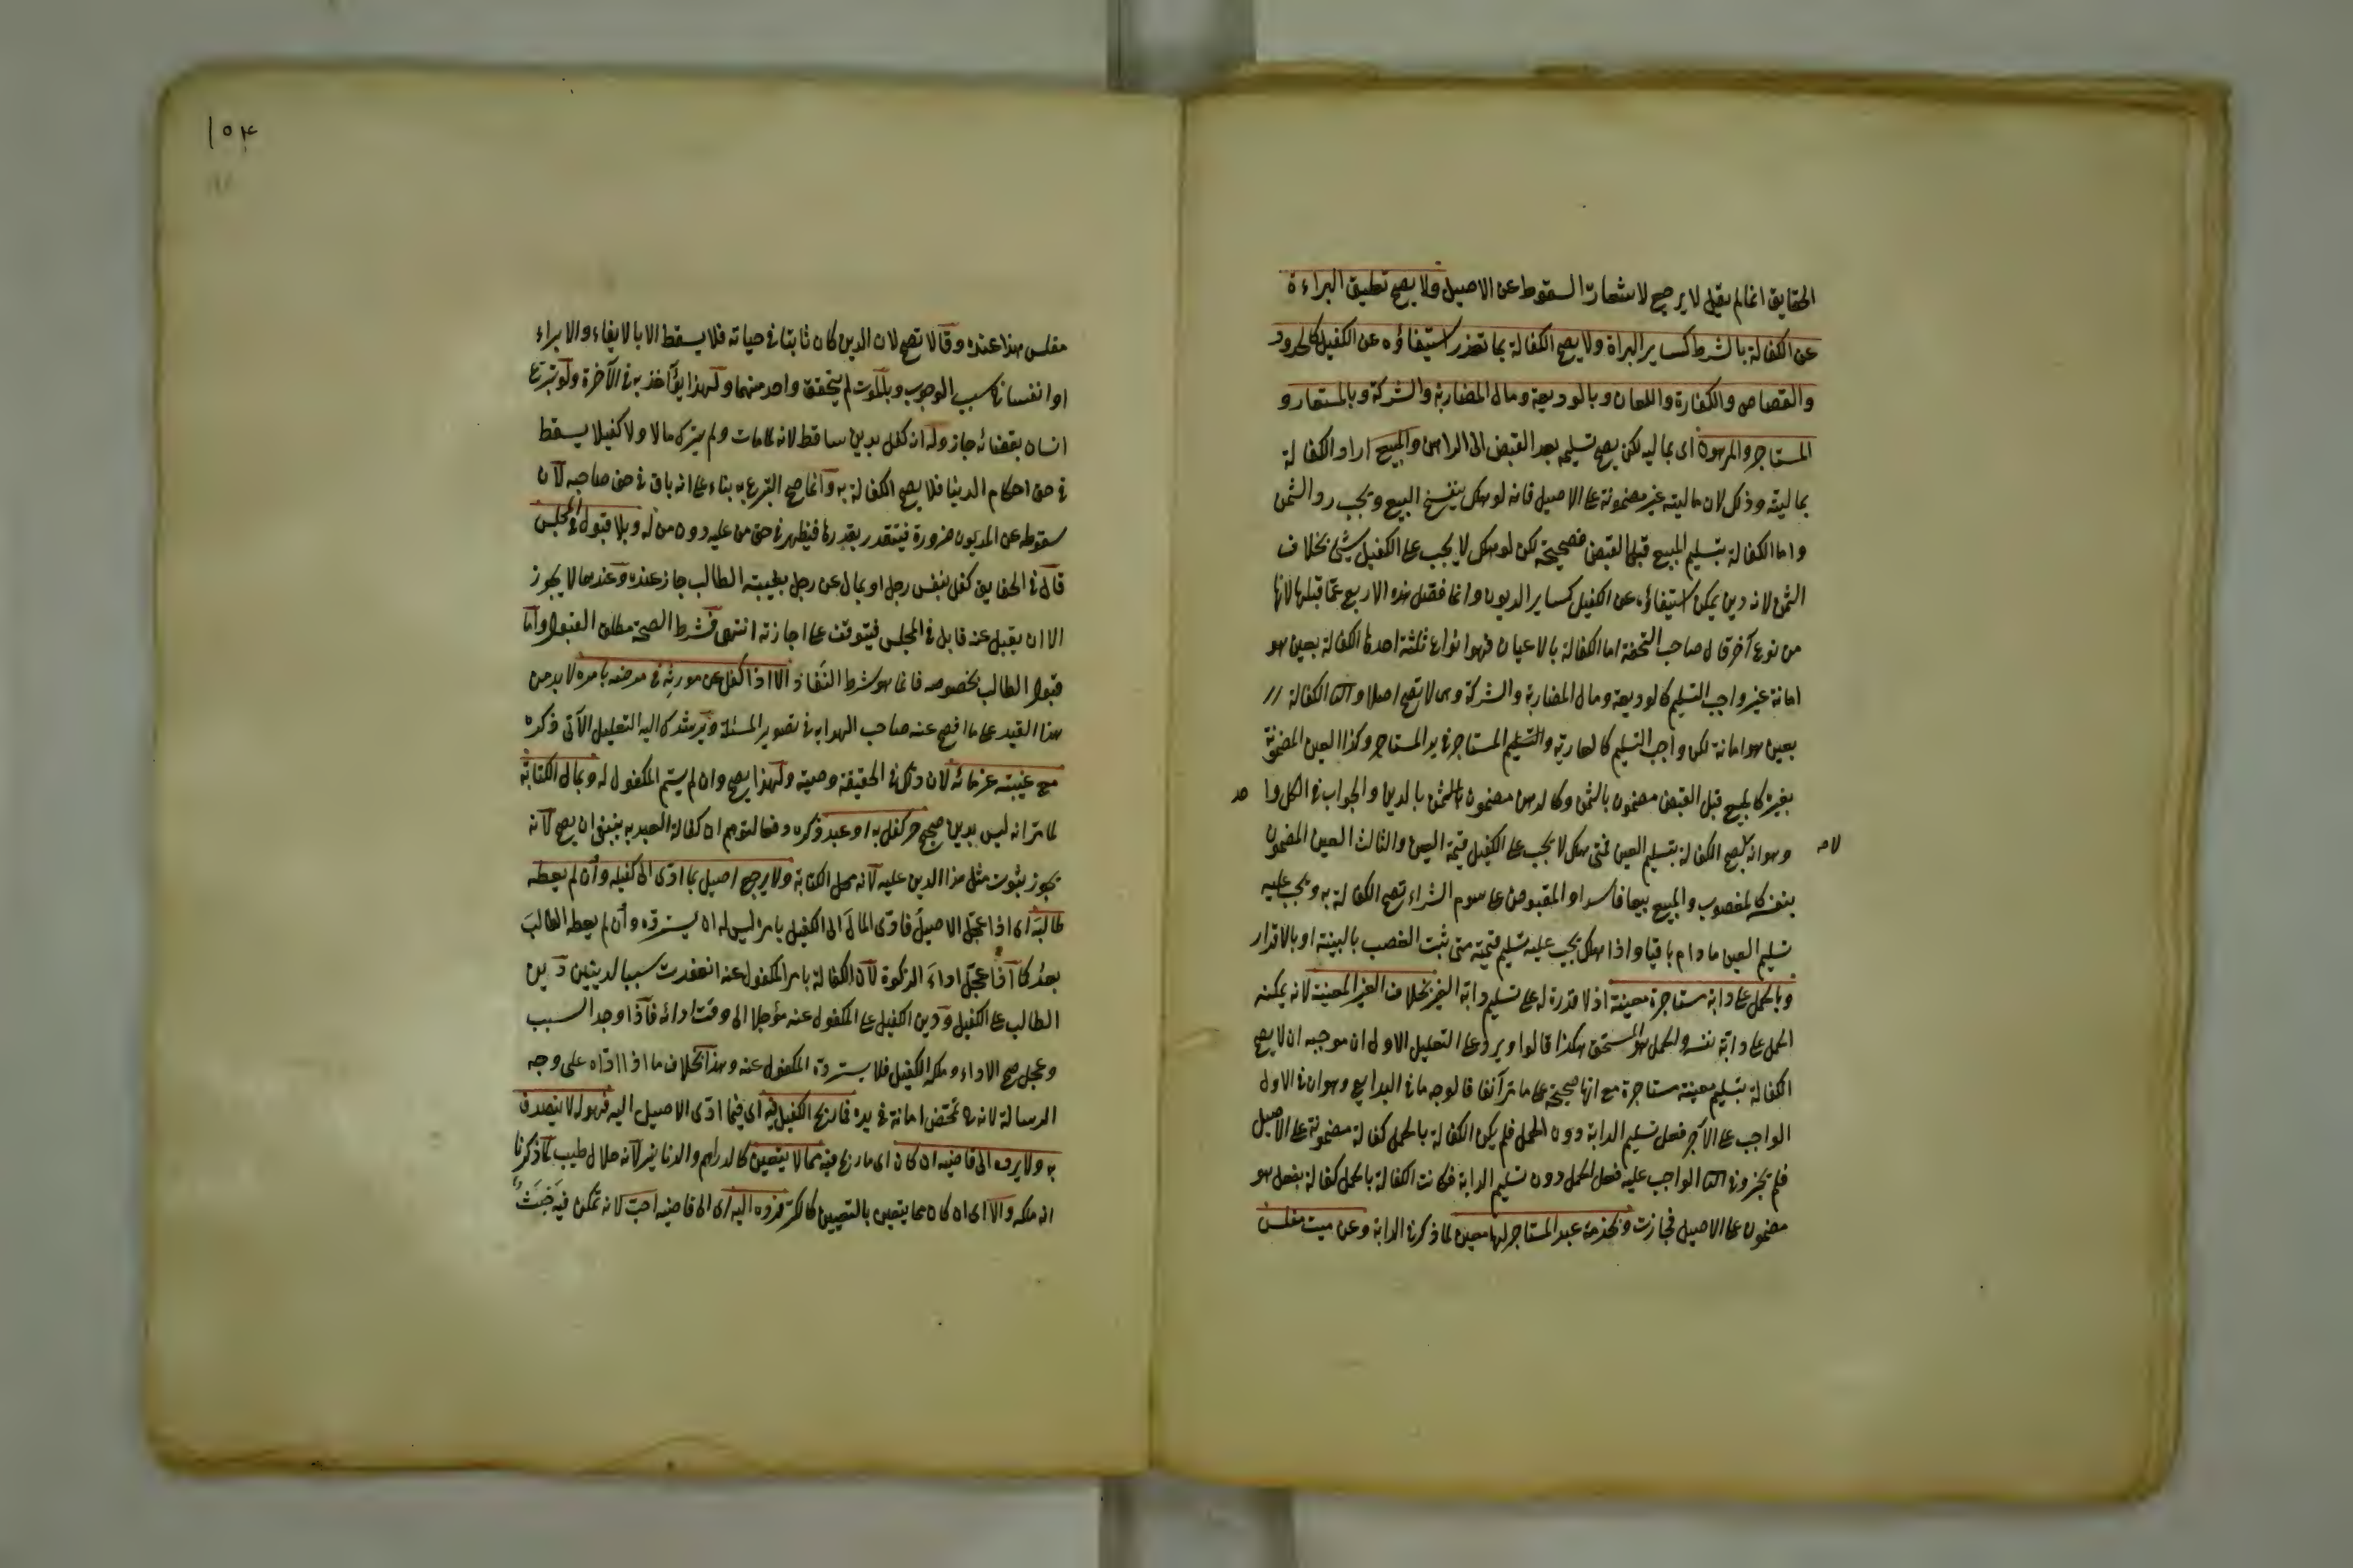 الحقايق انما لم يقل لا يرجع لاشعاره السقوط عن الاصيل ولا يصح تعليق البراءة
عن الكفالة بالشرط كساير البراة ولا يصح الكفالة بما تعذر استيفاؤه عن الكفيل كالحدود
والقصاص والكفارة واللعان وبالوديعة ومال المضاربة والشركة وبالمستعار و
المستاجر والمرهون اى بماليه لكن يصح تسليمه بعد القبض الى الراهن والمبيع اراد الكفالة
بماليته وذلك لان ماليته غير مضمونة على الاصيل فانه لو هلك ينفسخ البيع ويجب رد الثمن
واما الكفالة بتسليم المبيع قبل القبض فصحيحة لكن لو هلك لا يجب على الكفيل شئ بخلاف
الثمن لانه دين يمكن استيفاؤه عن الكفيل كساير الديون وانما فصل هذه الاربع عما قبلها لانها
من نوع آخر قال صاحب التحفة اما الكفالة بالاعيان فهو انواع ثلثة احدها الكفالة بعين هو
امانة غير واجب التسليم كالوديعة ومال المضاربة والشركة وهى لا تصح اصلا والثانى الكفالة
بعين هو امانة لكن واجب التسليم كالعارية والمستاجر فى يد المستاجر وكذا العين المضمونة
بغيره كالمبيع قبل القبض مضمون بالثمن وكالرهن مضمون بالدين والجواب فى الكل واحد
وهو انه يصح الكفالة بتسليم العين فمتى هلك لا يجب على الكفيل قيمة العين والثالث العين المضمون
بنفسه كالمغصوب والمبيع بيعا فاسدا والمقبوض على سوم الشراء تصح الكفالة به ويجب عليه
تسليم العين ما دام باقيا واذا هلك يجب عليه تسليم قيمته متى ثبت الغصب بالبينة او بالاقرار
وبالحمل على دابة مستاجرة معينة اذ لا قدرة له على تسليم دابة الغير بخلاف الغير المعينة لانه يمكنه
الحمل على دابة نفسه والحمل هو المستحق هكذا قالوا ويرد على التعليل الاول ان موجبه ان لا يصح
الكفالة بتسليم معينة مستاجرة مع انها صحيحة على ما مر آنفا فالوجه ما فى البدايع وهو ان فى الاول
الواجب على الآجر فعل تسليم الدابة دون الحمل فلم يكن الكفالة بالحمل كفالة مضمونة على الاصيل
فلم يجز وفى الثانى الواجب عليه فعل الحمل دون تسليم الدابة فكانت الكفالة بالحمل كفالة بفعل هو
مضمون على الاصيل فجازت وبخدمة عبد المستاجر لها معين لما ذكرنا الدابة وعن ميت مفلس
١٥٤
مفلس هذا عنده وقالا تصح لان الدين كان ثابتا فى حياته فلا يسقط الا بالايفاء والابراء
او انفساخ سبب الوجوب وبالموت لم يتحقق واحد منهما ولهذا يؤاخذ به فى الآخرة ولو تبرع
انسان بقضائه جاز وله انه كفل بدين ساقط لانه لما مات ولم يترك مالا ولا كفيلا يسقط
فى حق احكام الدنيا فلا يصح الكفالة به وانما صح التبرع به بناء على انه باق فى حق صاحبه لان
سقوطه عن المديون ضرورة فيتقدر بقدرها فيظهر فى حق من عليه دون من له وبلا قبول فى المجلس
قال فى الحقايق كفل بنفس رجل او بمال عن رجل بغيبة الطالب جاز عنده وعندهما لا يجوز
الا ان يقبل عنه قابل فى المجلس فيتوقف على اجازته انتهى فشرط الصحة مطلق القبول واما
قبول الطالب بخصوصه فانما هو شرط النفاذ الا اذا كفل عن مورثه فى مرضه بامره لا بد من
هذا القيد على ما افصح عنه صاحب الهداية فى تصوير المسئلة ويرشدك اليه التعليل الآتى ذكره
مع غيبته غرمائه لان ذلك فى الحقيقة وصية ولهذا يصح وان لم يسم المكفول له وبمال الكتابة
لما مر انه ليس بدين صحيح حر كفل به او عبد ذكره دفعا لتوهم ان كفالة العبد به ينبغى ان يصح لانه
يجوز ثبوت مثل هذا الدين عليه لانه محل الكتابة ولا يرجع اصيل بما ادى الى كفيله وان لم يعطه
طالبه اى اذا عجل الاصيل فادى المال الى الكفيل بامره ليس له ان يسترده وان لم يعط الطالب
بعد كما اذا عجل اداء الزكوة لان الكفالة بامر المكفول عنه انعقدت سببا لدينين دين
الطالب على الكفيل ودين الكفيل على المكفول عنه مؤجلا الى وقت ادائه فاذا وجد السبب
وعجل صح الاداء وملكه الكفيل فلا يسترده المكفول عنه وهذا بخلاف ما اذا اداه على وجه
الرسالة لانه تمحض امانة فى يده فما ربح الكفيل فيه اى فيما ادى الاصيل اليه فهو له لا يتصدق
به ولا يرده الى قاضيه ان كان اى ما ربح فيه مما لا يتعين كالدراهم والدنانير لانه حلال طيب لما ذكرنا
انه ملكه والا اى ان كان مما يتعين بالتعيين كالكر فرده اليه اى الى قاضيه احب لانه تمكن فيه خبث